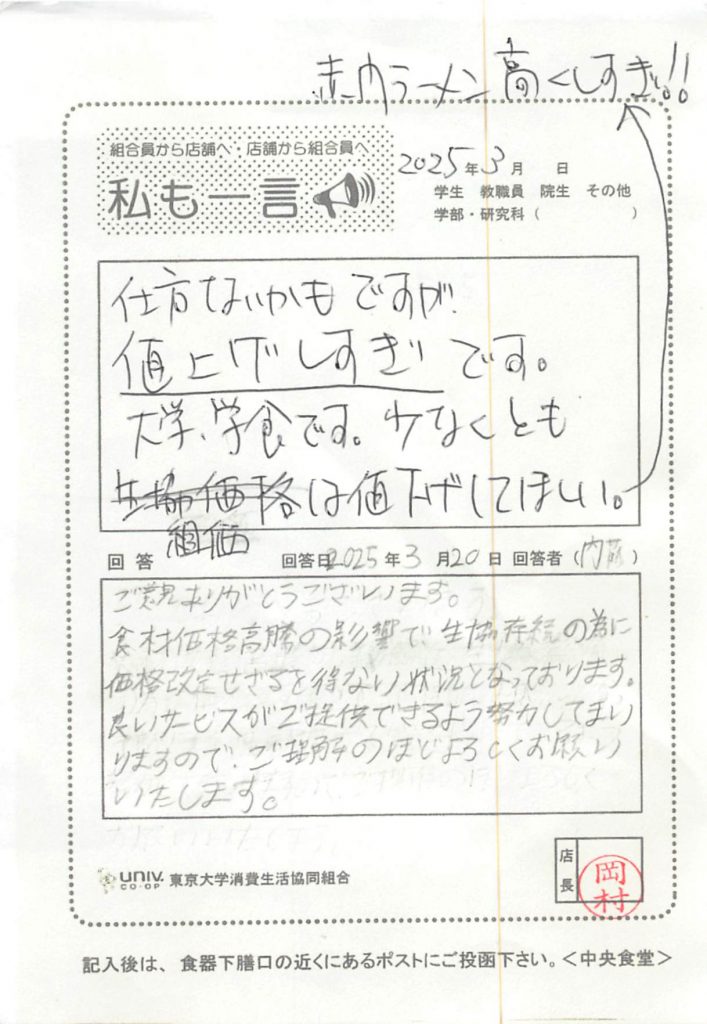 赤門ラーメン高くしすぎ!!
組合員から店舗へ・店舗から組合員へ
私も一言
2025年3月 日
学生 教職員 院生 その他
学部・研究科( )
仕方ないかもですが、
値上げしすぎです。
大学、学食です。少なくとも
生協価格は値下げしてほしい。
組価
回答 回答日2025年3月20日 回答者(内藤)
ご意見ありがとうございます。
食材価格高騰の影響で、生協存続の為に
価格改定せざるを得ない状況となっております。
良いサービスがご提供できるよう努力してまい
りますので、ご理解のほどよろしくお願い
いたします。
店長
岡村
UNIV. CO-OP 東京大学消費生活協同組合
記入後は、食器下膳口の近くにあるポストにご投函下さい。<中央食堂>